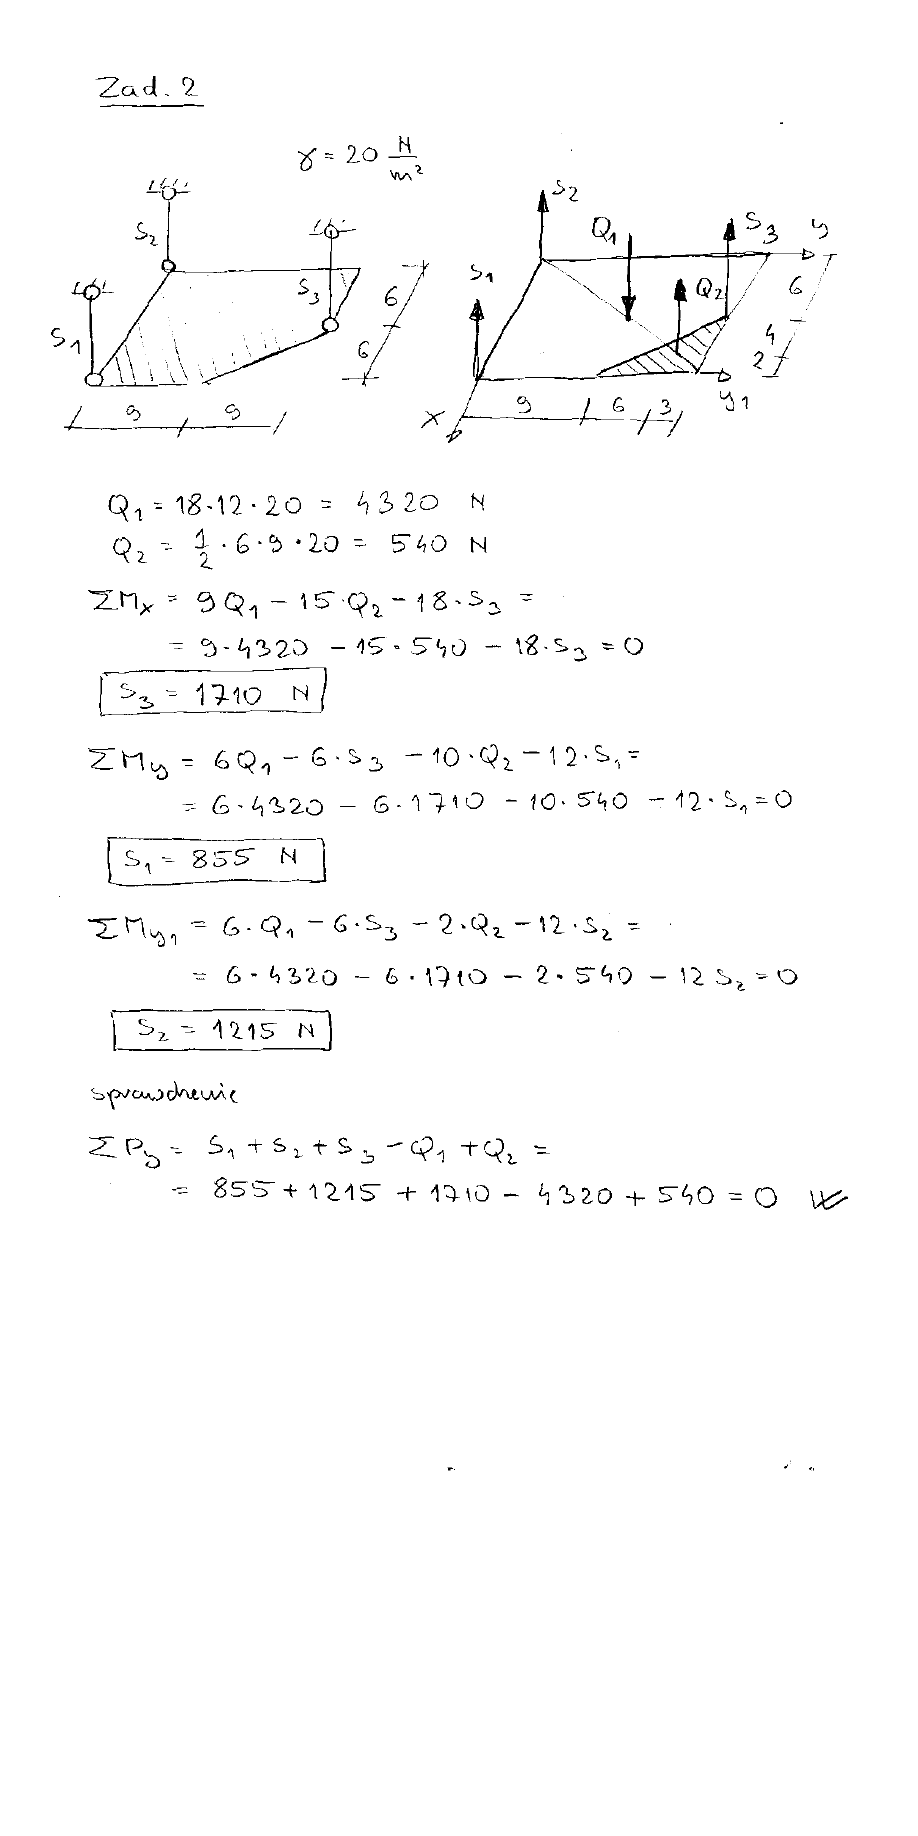 Zad. 2
γ = 20 N/m²
S₂
S₁
S₃
6
6
9
9
S₂
Q₁
S₃
y
S₁
Q₂
6
4
2
x
9
6
3
y₁
Q₁ = 18·12·20 = 4320 N
Q₂ = 1/2 · 6·9·20 = 540 N
ΣMx = 9Q₁ - 15·Q₂ - 18·S₃ =
= 9·4320 - 15·540 - 18·S₃ = 0
S₃ = 1710 N
ΣMy = 6Q₁ - 6·S₃ - 10·Q₂ - 12·S₁ =
= 6·4320 - 6·1710 - 10·540 - 12·S₁ = 0
S₁ = 855 N
ΣMy₁ = 6·Q₁ - 6·S₃ - 2·Q₂ - 12·S₂ =
= 6·4320 - 6·1710 - 2·540 - 12 S₂ = 0
S₂ = 1215 N
sprawdzenie
ΣPy = S₁ + S₂ + S₃ - Q₁ + Q₂ =
= 855 + 1215 + 1710 - 4320 + 540 = 0